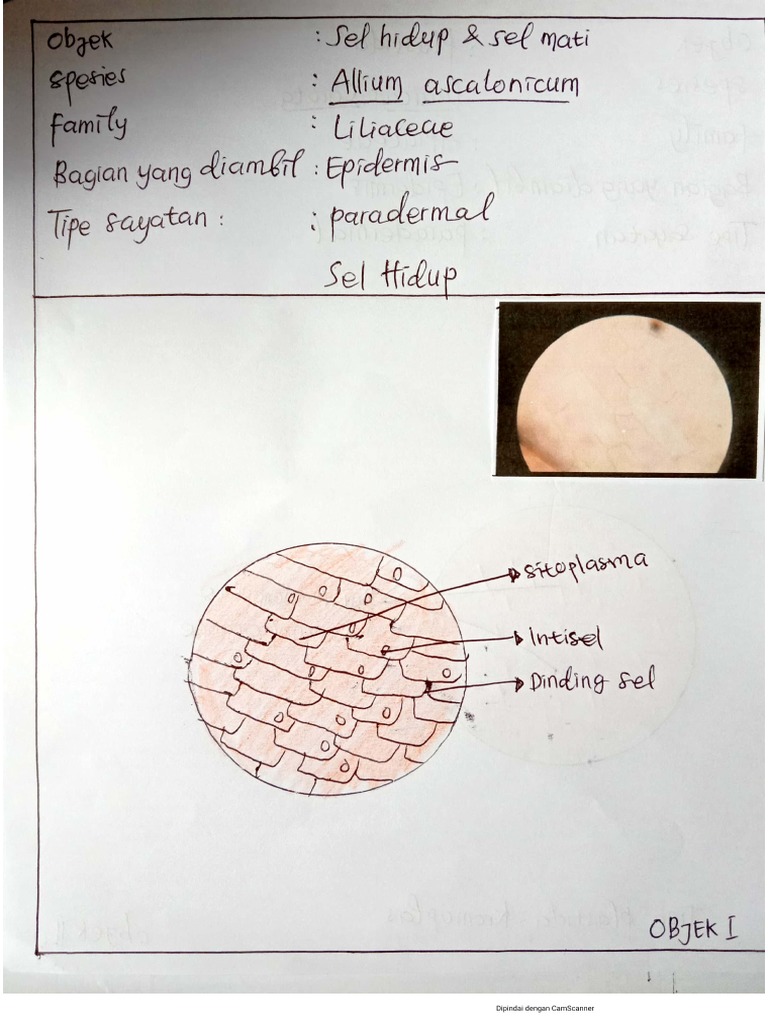 Objek : Sel hidup & sel mati
Spesies : Allium ascalonicum
Family : Liliaceae
Bagian yang diambil : Epidermis
Tipe sayatan : : paradermal
Sel Hidup
Sitoplasma
Intisel
Dinding sel
OBJEK I
Dipindai dengan CamScanner